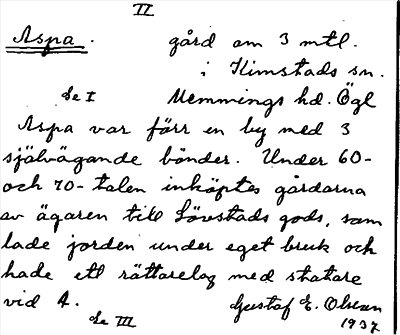 II
Aspa. gård om 3 mtl.
i Kimstads sn.
Se I Memmings hd. Ögl
Aspa var förr en by med 3
självägande bönder. Under 60-
och 70-talen inköptes gårdarna
av ägaren till Lövstads gods, som
lade jorden under eget bruk och
hade ett rättarelag med statare
vid A. Gustaf E. Olsson
Se III 1937